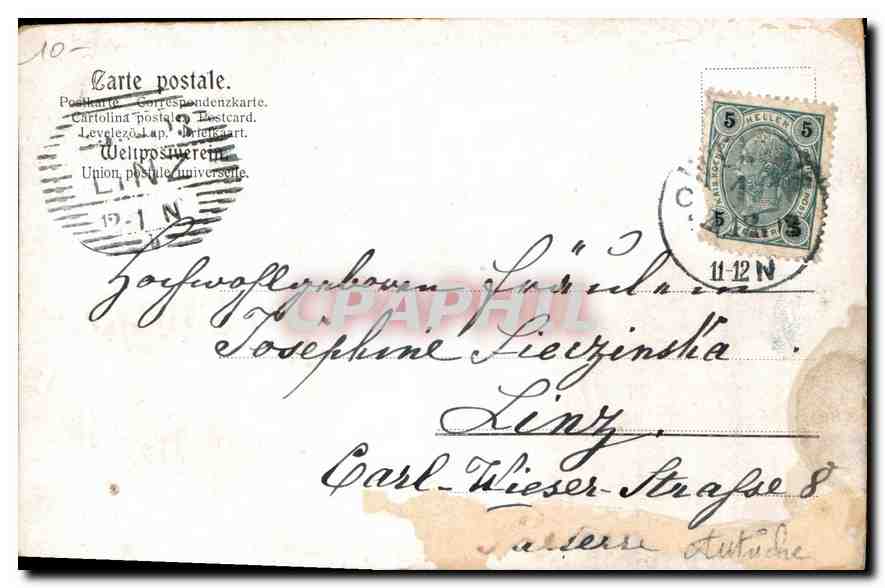 10-
Carte postale.
Postkarte. Correspondenzkarte.
Cartolina postale. Postcard.
Levelező-Lap. Briefkaart.
Weltpostverein.
Union postale universelle.
LINZ
12-1 N
5 HELLER 5
5
11-12 N
Hochwohlgeboren Fräulein
CPAPHIL
Josephine Lieczinska
Linz.
Carl-Wieser-Strasse 8
Autriche